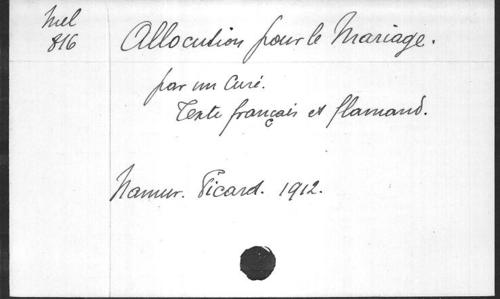 Mel
816
Allocution pour le Mariage.
par un Curé.
Texte français et flamand.
Namur. Picard. 1912.